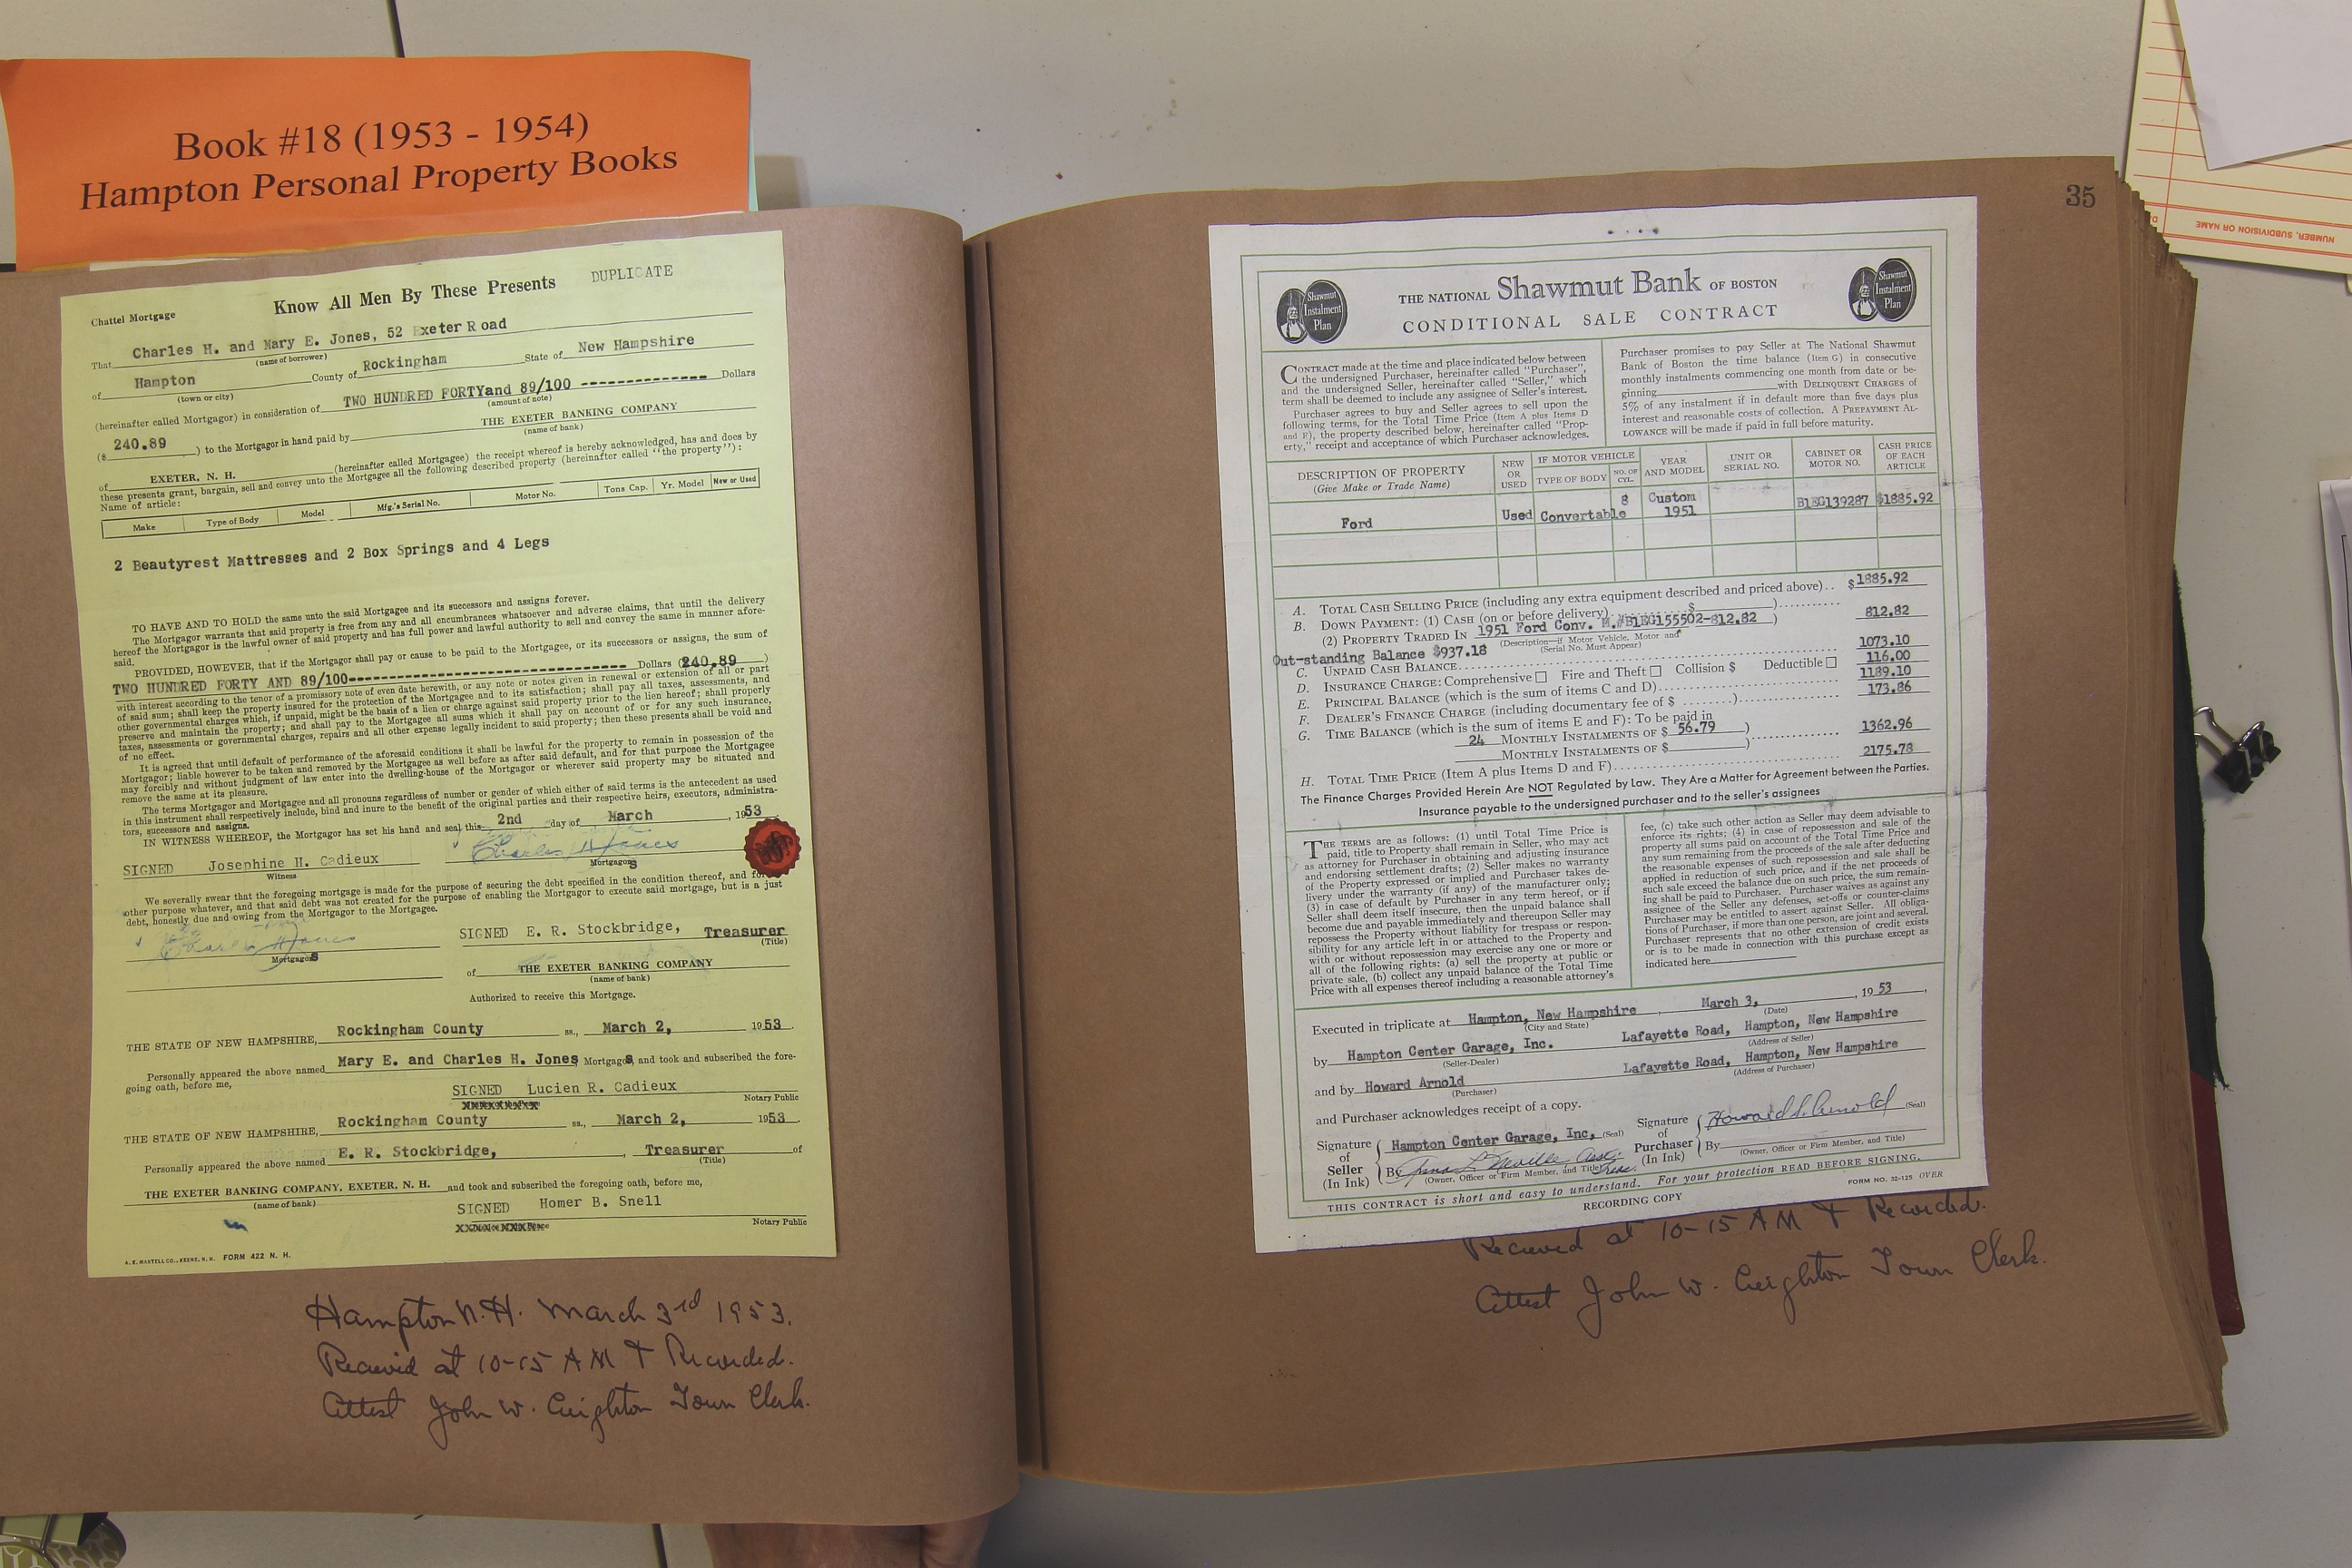 Book #18 (1953 - 1954)
Hampton Personal Property Books
DUPLICATE
Know All Men By These Presents
Chattel Mortgage
That Charles H. and Mary E. Jones, 52 Exeter Road
(name of borrower)
of Hampton County of Rockingham State of New Hampshire
(town or city)
(hereinafter called Mortgagor) in consideration of TWO HUNDRED FORTYand 89/100 -------------- Dollars
(amount of note)
($ 240.89 ) to the Mortgagor in hand paid by THE EXETER BANKING COMPANY
(name of bank)
of EXETER, N. H. (hereinafter called Mortgagee) the receipt whereof is hereby acknowledged, has and does by
these presents grant, bargain, sell and convey unto the Mortgagee all the following described property (hereinafter called "the property"):
Name of article:
Make Type of Body Model Mfg.'s Serial No. Motor No. Tons Cap. Yr. Model New or Used
2 Beautyrest Mattresses and 2 Box Springs and 4 Legs
TO HAVE AND TO HOLD the same unto the said Mortgagee and its successors and assigns forever.
The Mortgagor warrants that said property is free from any and all encumbrances whatsoever and adverse claims, that until the delivery
hereof the Mortgagor is the lawful owner of said property and has full power and lawful authority to sell and convey the same in manner afore-
said.
PROVIDED, HOWEVER, that if the Mortgagor shall pay or cause to be paid to the Mortgagee, or its successors or assigns, the sum of
TWO HUNDRED FORTY AND 89/100------------------------------ Dollars (240.89 )
with interest according to the tenor of a promissory note of even date herewith, or any note or notes given in renewal or extension of all or part
of said sum; shall keep the property insured for the protection of the Mortgagee and to its satisfaction; shall pay all taxes, assessments, and
other governmental charges which, if unpaid, might be the basis of a lien or charge against said property prior to the lien hereof; shall properly
preserve and maintain the property; and shall pay to the Mortgagee all sums which it shall pay on account of or for any such insurance,
taxes, assessments or governmental charges, repairs and all other expense legally incident to said property; then these presents shall be void and
of no effect.
It is agreed that until default of performance of the aforesaid conditions it shall be lawful for the property to remain in possession of the
Mortgagor; liable however to be taken and removed by the Mortgagee as well before as after said default, and for that purpose the Mortgagee
may forcibly and without judgment of law enter into the dwelling-house of the Mortgagor or wherever said property may be situated and
remove the same at its pleasure.
The terms Mortgagor and Mortgagee and all pronouns regardless of number or gender of which either of said terms is the antecedent as used
in this instrument shall respectively include, bind and inure to the benefit of the original parties and their respective heirs, executors, administra-
tors, successors and assigns.
IN WITNESS WHEREOF, the Mortgagor has set his hand and seal this 2nd day of March , 1953
SIGNED Josephine H. Cadieux Charles H Jones
Witness Mortgagors
We severally swear that the foregoing mortgage is made for the purpose of securing the debt specified in the condition thereof, and for
other purpose whatever, and that said debt was not created for the purpose of enabling the Mortgagor to execute said mortgage, but is a just
debt, honestly due and owing from the Mortgagor to the Mortgagee.
Charles H Jones SIGNED E. R. Stockbridge, Treasurer
Mortgagors (Title)
of THE EXETER BANKING COMPANY
(name of bank)
Authorized to receive this Mortgage.
THE STATE OF NEW HAMPSHIRE, Rockingham County ss., March 2, 1953.
Personally appeared the above named Mary E. and Charles H. Jones Mortgagors, and took and subscribed the fore-
going oath, before me,
SIGNED Lucien R. Cadieux
Notary Public
THE STATE OF NEW HAMPSHIRE, Rockingham County ss., March 2, 1953.
Personally appeared the above named E. R. Stockbridge, , Treasurer of
(Title)
THE EXETER BANKING COMPANY, EXETER, N. H. and took and subscribed the foregoing oath, before me,
(name of bank)
SIGNED Homer B. Snell
Notary Public
A. E. MARTELL CO., KEENE, N. H. FORM 422 N. H.
Hampton N.H. March 3rd 1953.
Recieved at 10-15 AM & Recorded.
Attest John W. Creighton Town Clerk.
35
Shawmut Instalment Plan
THE NATIONAL Shawmut Bank OF BOSTON
CONDITIONAL SALE CONTRACT
Shawmut Instalment Plan
CONTRACT made at the time and place indicated below between
the undersigned Purchaser, hereinafter called "Purchaser",
and the undersigned Seller, hereinafter called "Seller," which
term shall be deemed to include any assignee of Seller's interest.
Purchaser agrees to buy and Seller agrees to sell upon the
following terms, for the Total Time Price (Item A plus Items D
and F), the property described below, hereinafter called "Prop-
erty," receipt and acceptance of which Purchaser acknowledges.
Purchaser promises to pay Seller at The National Shawmut
Bank of Boston the time balance (Item G) in consecutive
monthly instalments commencing one month from date or be-
ginning with DELINQUENT CHARGES of
5% of any instalment if in default more than five days plus
interest and reasonable costs of collection. A PREPAYMENT AL-
LOWANCE will be made if paid in full before maturity.
DESCRIPTION OF PROPERTY (Give Make or Trade Name) NEW OR USED IF MOTOR VEHICLE TYPE OF BODY NO. OF CYL. YEAR AND MODEL UNIT OR SERIAL NO. CABINET OR MOTOR NO. CASH PRICE OF EACH ARTICLE
Ford Used Convertable 8 Custom 1951 B1EG139287 $1885.92
A. TOTAL CASH SELLING PRICE (including any extra equipment described and priced above).. $1885.92
B. DOWN PAYMENT: (1) CASH (on or before delivery)..........$ )..........
(2) PROPERTY TRADED IN 1951 Ford Conv. M.#B1EG155502-812.82 ) 812.82
(Description—if Motor Vehicle, Motor and Serial No. Must Appear)
Out-standing Balance $937.18
C. UNPAID CASH BALANCE.......... 1073.10
D. INSURANCE CHARGE: Comprehensive ☐ Fire and Theft ☐ Collision $ Deductible ☐ 116.00
E. PRINCIPAL BALANCE (which is the sum of items C and D).......... 1189.10
F. DEALER'S FINANCE CHARGE (including documentary fee of $ ........).......... 173.86
G. TIME BALANCE (which is the sum of items E and F): To be paid in
24 MONTHLY INSTALMENTS OF $ 56.79 ) 1362.96
MONTHLY INSTALMENTS OF $ )..........
H. TOTAL TIME PRICE (Item A plus Items D and F).......... 2175.78
The Finance Charges Provided Herein Are NOT Regulated by Law. They Are a Matter for Agreement between the Parties.
Insurance payable to the undersigned purchaser and to the seller's assignees
THE TERMS are as follows: (1) until Total Time Price is
paid, title to Property shall remain in Seller, who may act
as attorney for Purchaser in obtaining and adjusting insurance
and endorsing settlement drafts; (2) Seller makes no warranty
of the Property expressed or implied and Purchaser takes de-
livery under the warranty (if any) of the manufacturer only;
(3) in case of default by Purchaser in any term hereof, or if
Seller shall deem itself insecure, then the unpaid balance shall
become due and payable immediately and thereupon Seller may
repossess the Property without liability for trespass or respon-
sibility for any article left in or attached to the Property and
with or without repossession may exercise any one or more or
all of the following rights: (a) sell the property at public or
private sale, (b) collect any unpaid balance of the Total Time
Price with all expenses thereof including a reasonable attorney's
fee, (c) take such other action as Seller may deem advisable to
enforce its rights; (4) in case of repossession and sale of the
property all sums paid on account of the Total Time Price and
any sum remaining from the proceeds of the sale after deducting
the reasonable expenses of such repossession and sale shall be
applied in reduction of such price, and if the net proceeds of
such sale exceed the balance due on such price, the sum remain-
ing shall be paid to Purchaser. Purchaser waives as against any
assignee of Seller any defenses, set-offs or counter-claims
Purchaser may be entitled to assert against Seller. All obliga-
tions of Purchaser, if more than one person, are joint and several.
Purchaser represents that no other extension of credit exists
or is to be made in connection with this purchase except as
indicated here
Executed in triplicate at Hampton, New Hampshire , March 3, , 19 53 .
(City and State) (Date)
by Hampton Center Garage, Inc. Lafayette Road, Hampton, New Hampshire
(Seller-Dealer) (Address of Seller)
and by Howard Arnold Lafayette Road, Hampton, New Hampshire
(Purchaser) (Address of Purchaser)
and Purchaser acknowledges receipt of a copy.
Signature of Seller (In Ink) Hampton Center Garage, Inc. (Seal)
By Neville Asst. Treas.
(Owner, Officer or Firm Member, and Title)
Signature of Purchaser (In Ink) Howard L. Arnold (Seal)
By
(Owner, Officer or Firm Member, and Title)
THIS CONTRACT is short and easy to understand. For your protection READ BEFORE SIGNING.
RECORDING COPY
FORM NO. 32-125 OVER
Recieved at 10-15 AM & Recorded.
Attest John W. Creighton Town Clerk.
NUMBER, SUBDIVISION OR NAME